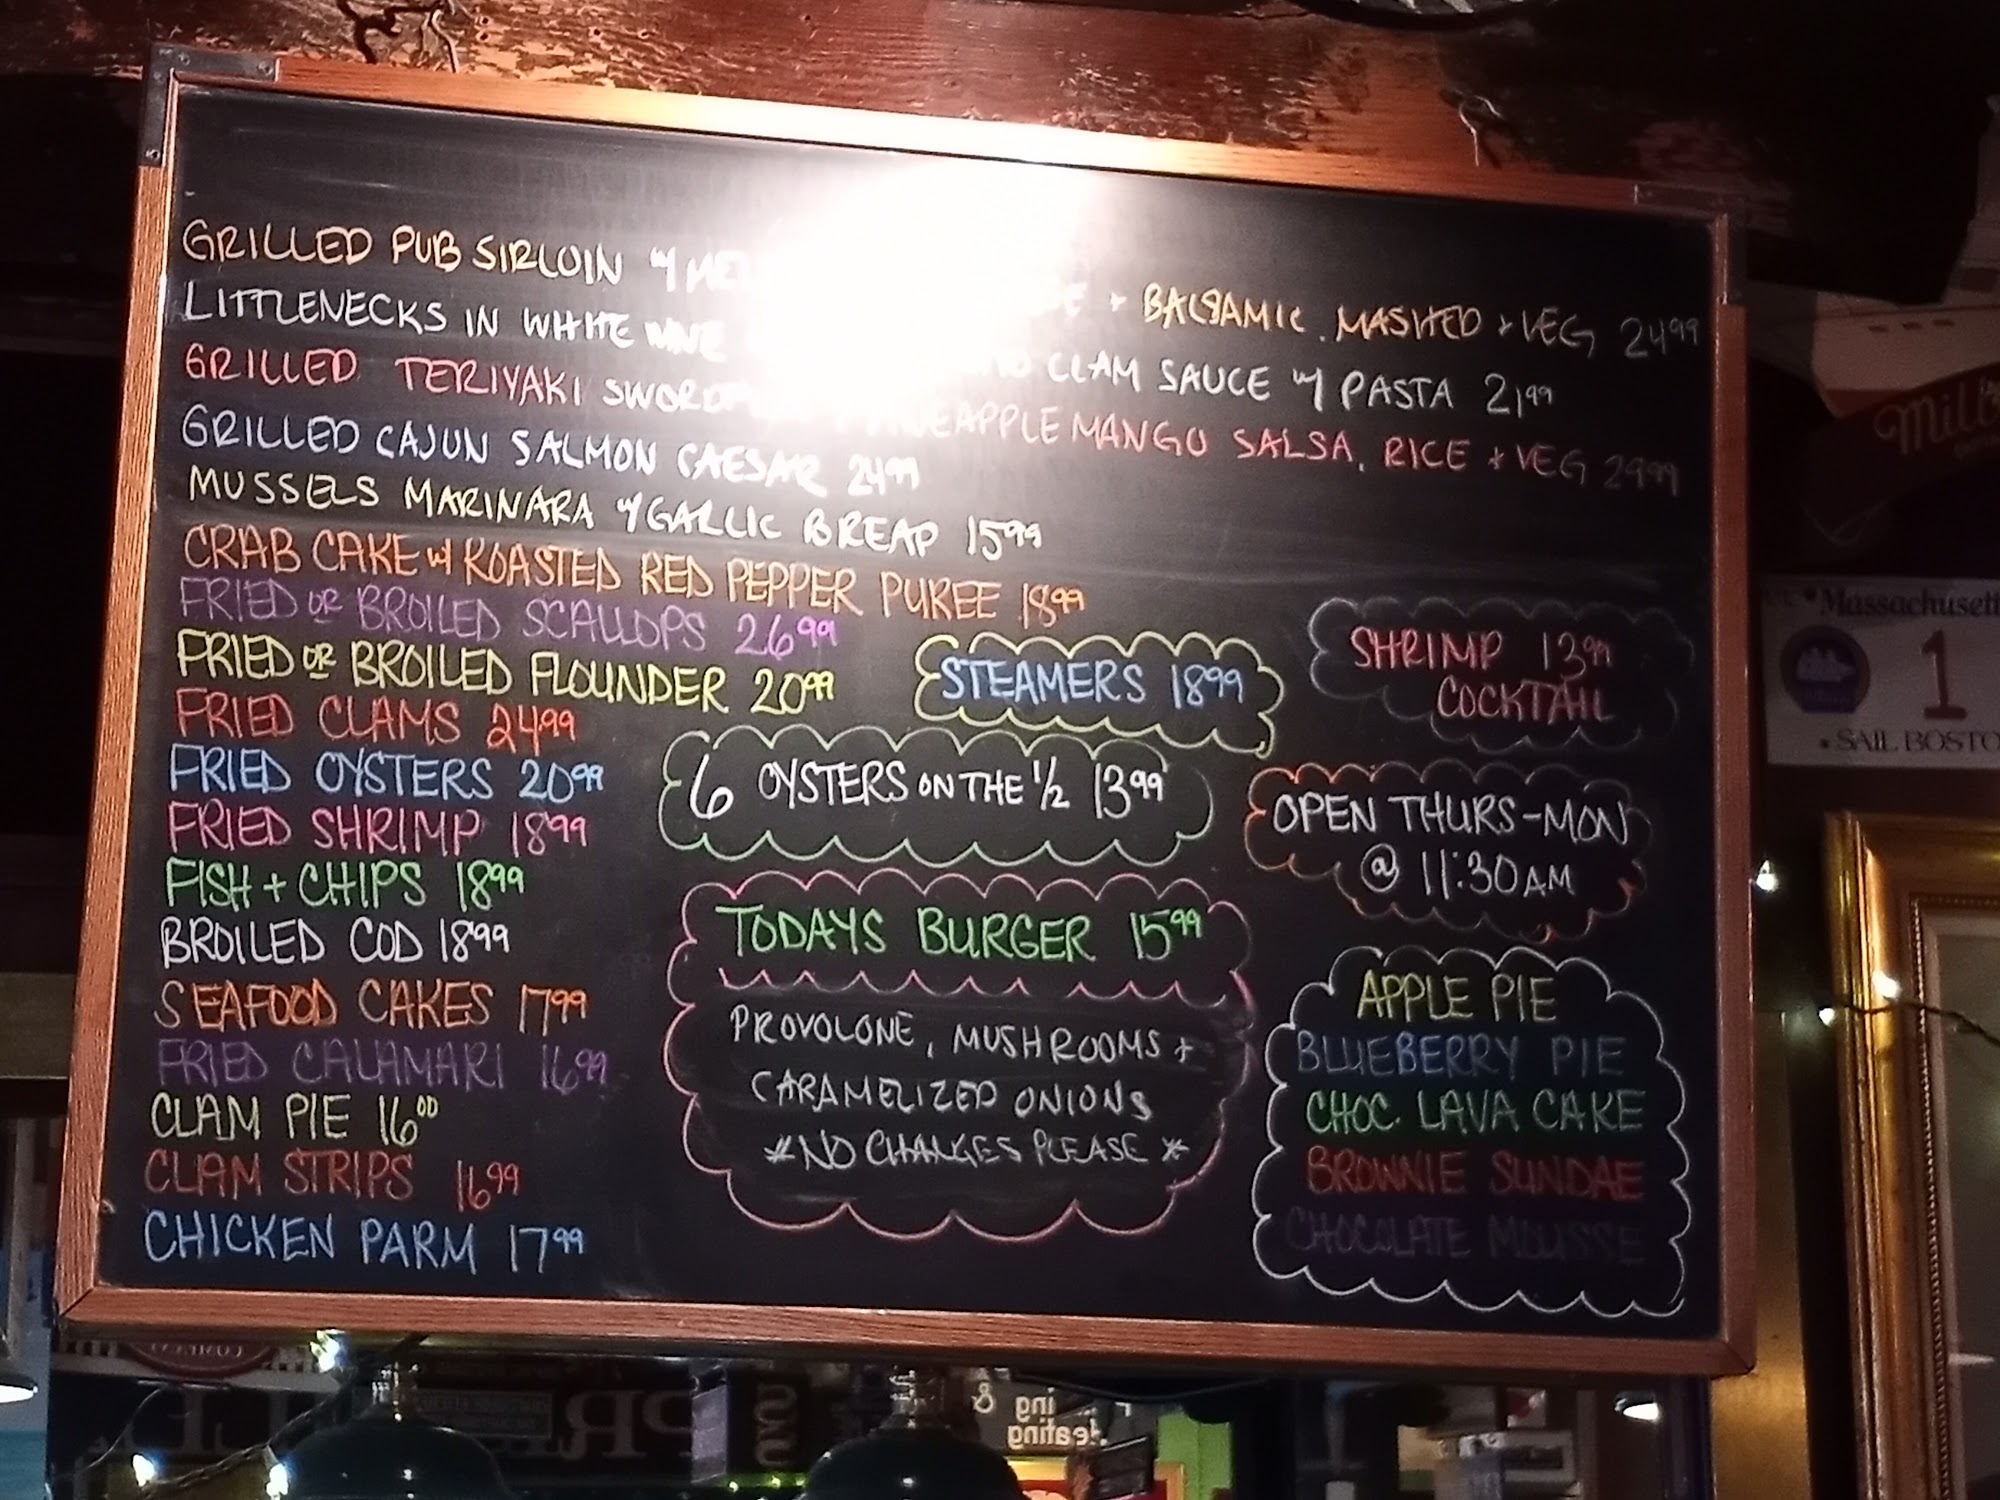 GRILLED PUB SIRLOIN W/ + BALSAMIC. MASHED + VEG 24.99
LITTLENECKS IN WHITE WINE CLAM SAUCE W/ PASTA 21.99
GRILLED TERIYAKI MANGO SALSA, RICE + VEG 29.99
GRILLED CAJUN SALMON CAESAR 24.99
MUSSELS MARINARA W/ GARLIC BREAD 15.99
CRAB CAKE W/ ROASTED RED PEPPER PUREE 18.99
FRIED OR BROILED SCALLOPS 26.99
FRIED OR BROILED FLOUNDER 20.99
FRIED CLAMS 24.99
FRIED OYSTERS 20.99
FRIED SHRIMP 18.99
FISH + CHIPS 18.99
BROILED COD 18.99
SEAFOOD CAKES 17.99
FRIED CALAMARI 16.99
CLAM PIE 16.00
CLAM STRIPS 16.99
CHICKEN PARM 17.99
STEAMERS 18.99
SHRIMP 13.99
COCKTAIL
6 OYSTERS ON THE 1/2 13.99
OPEN THURS-MON
@ 11:30AM
TODAYS BURGER 15.99
PROVOLONE, MUSHROOMS +
CARAMELIZED ONIONS
*NO CHANGES PLEASE*
APPLE PIE
BLUEBERRY PIE
CHOC. LAVA CAKE
BROWNIE SUNDAE
CHOCOLATE MOUSSE
1